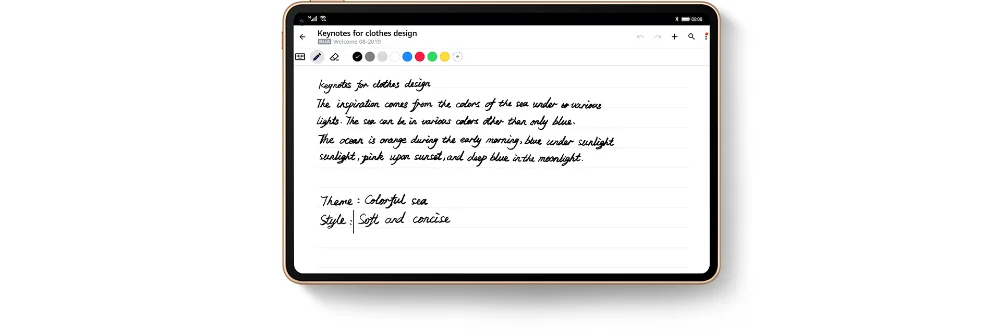 08:08
Keynotes for clothes design
Welcome 08-2019
Keynotes for clothes design
The inspiration comes from the colors of the sea under various
lights. The sea can be in various colors other than only blue.
The ocean is orange during the early morning, blue under sunlight
sunlight, pink upon sunset, and deep blue in the moonlight.
Theme: Colorful sea
Style: Soft and concise